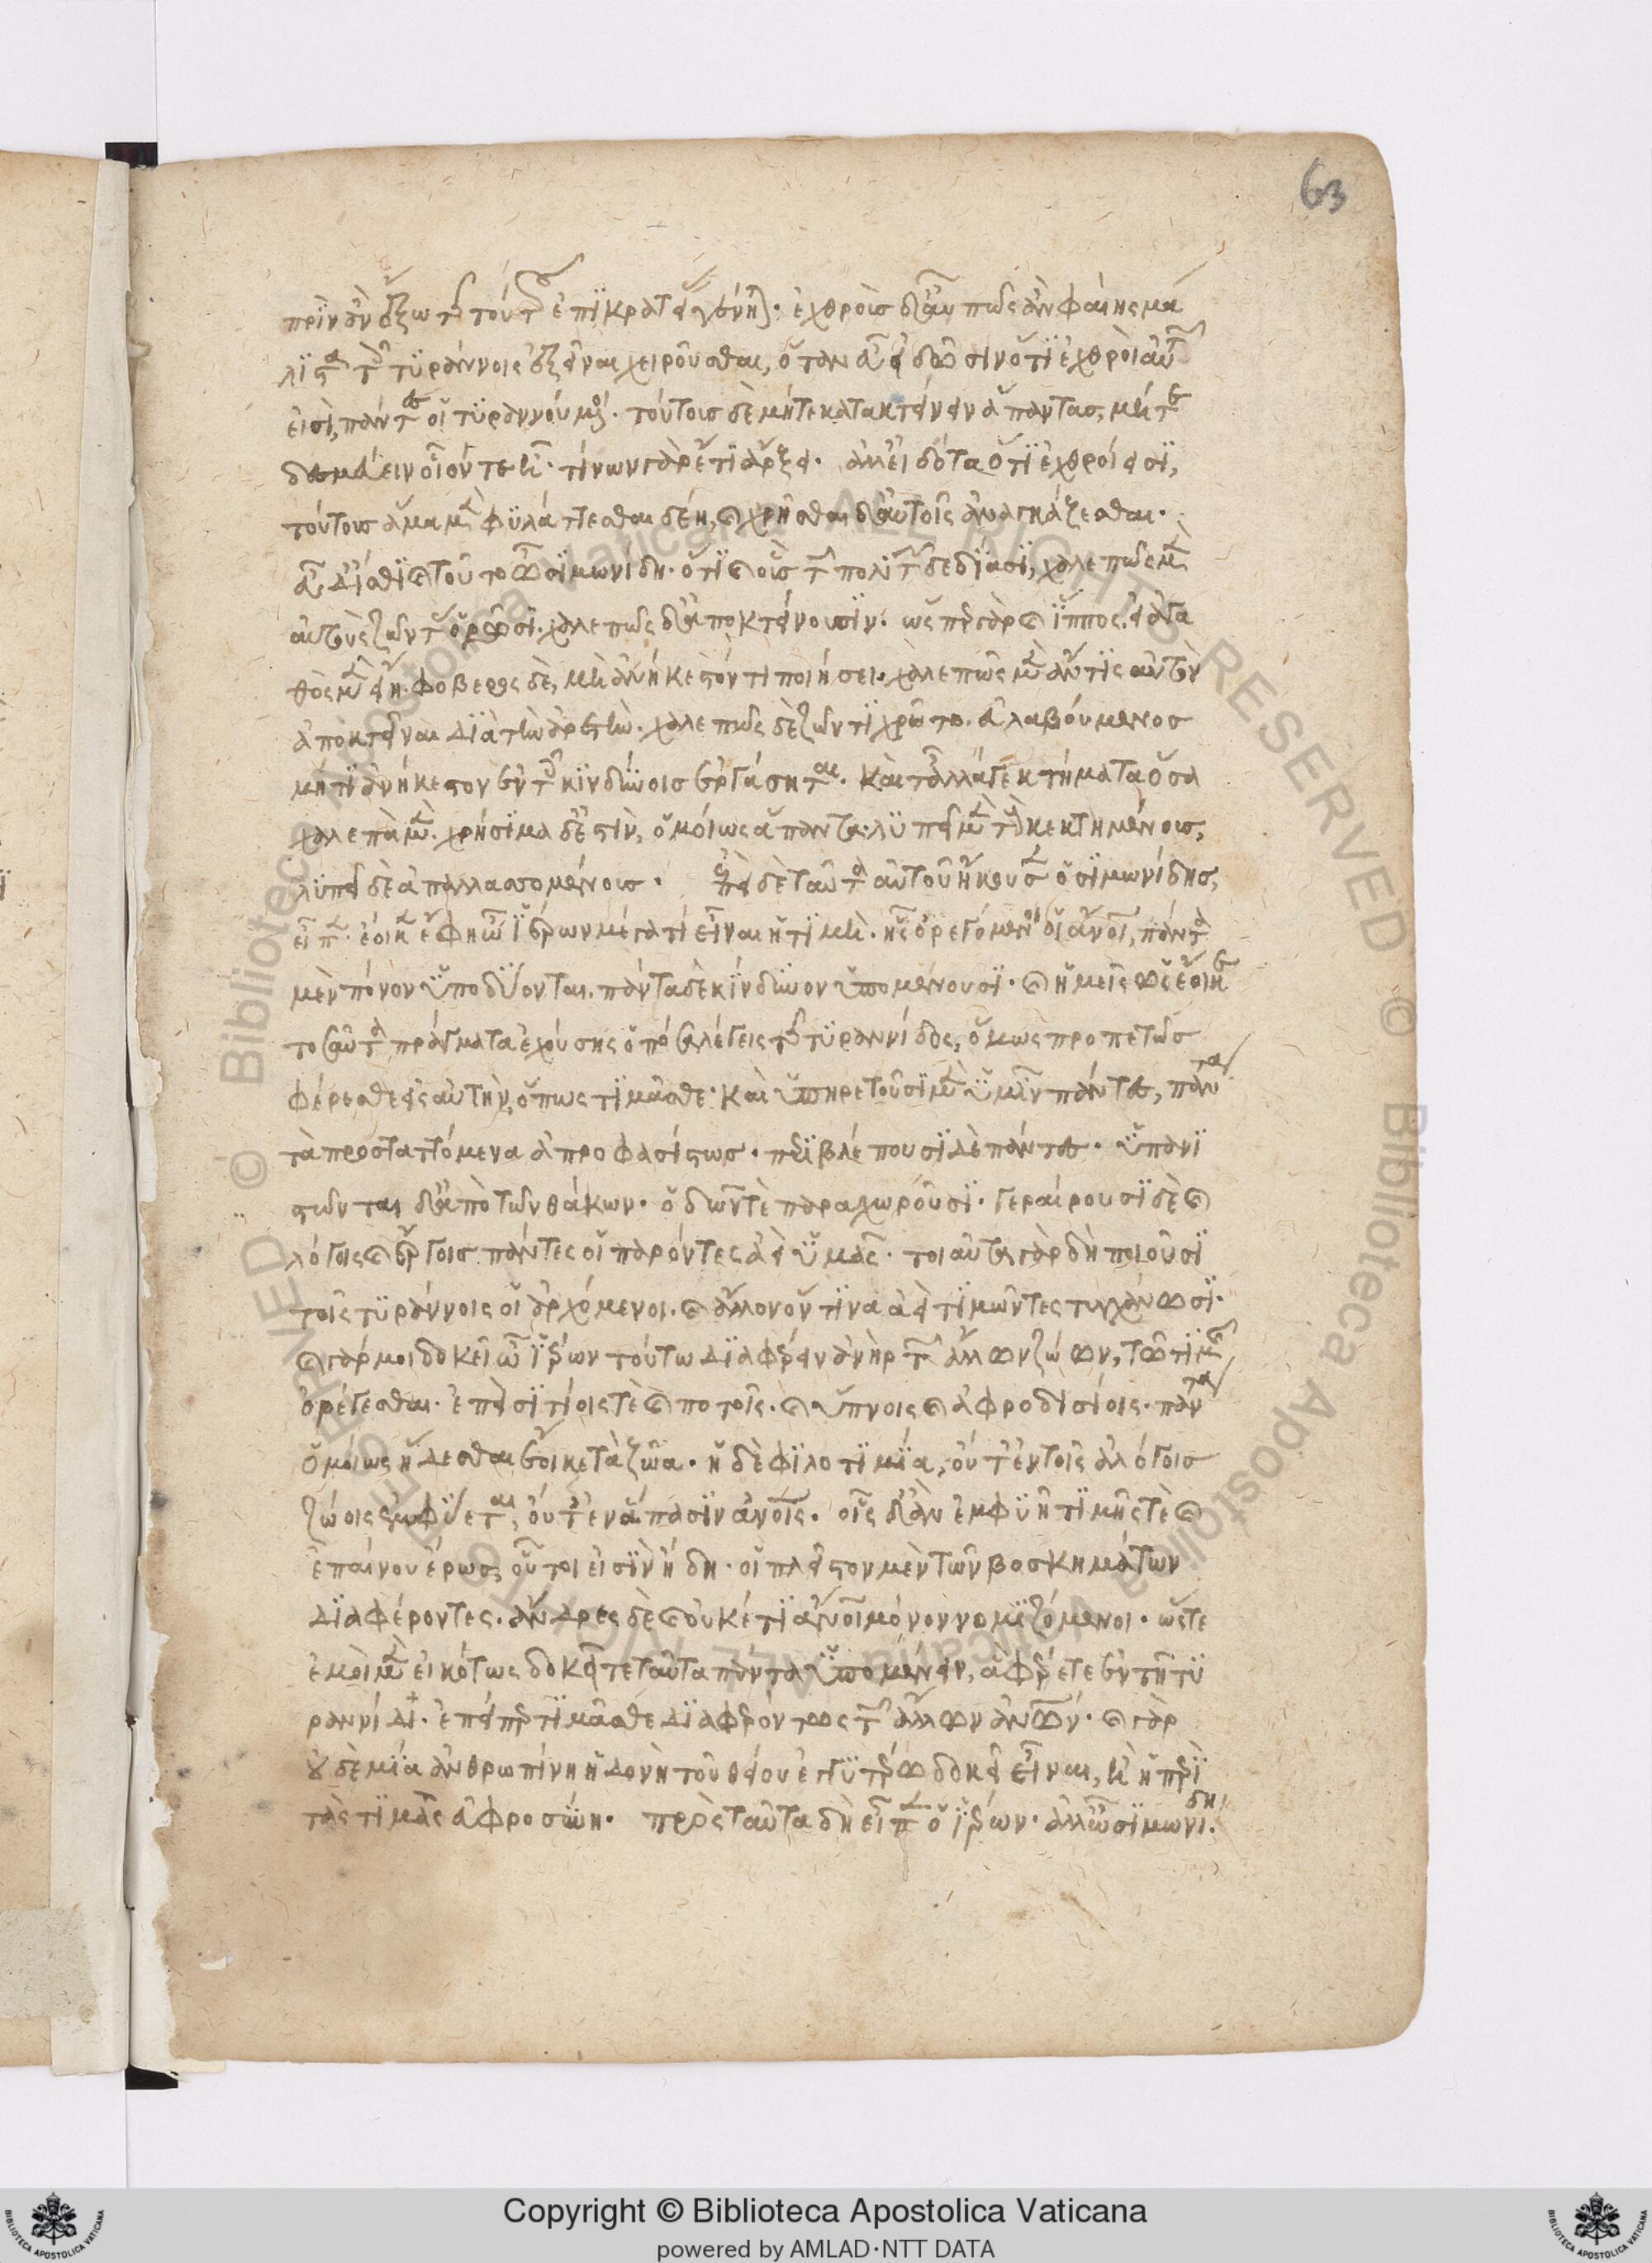 πρὶν ἂν ἔξω τῆς τούτων ἐπικρατείας γένηται. ἐχθροῖς δ' ἄν πως ἂν φαίης μά
λιστα τοῖς τυράννοις ἐξεῖναι χειροῦσθαι, ὅταν εὖ εἰδῶσιν ὅτι ἐχθροὶ αὐτῶν
εἰσὶ, πάντες οἱ τυραννούμενοι. τούτους δὲ μήτε κατακτείνειν ἅπαντας, μήτε
δεσμεύειν οἷόν τε ᾖ. τίνων γὰρ ἔτι ἄρξει. ἀλλ' εἰδότα ὅτι ἐχθροί εἰσι,
τούτους ἅμα μὲν φυλάττεσθαι δέῃ, καὶ χρῆσθαι δ' αὐτοῖς ἀναγκάζεσθαι.
εὖ δ' ἴσθι καὶ τοῦτο ὦ σιμωνίδη. ὅτι καὶ οὓς τῶν πολιτῶν δεδίασι, χαλεπῶς μὲν
αὐτοὺς ζῶντας ὁρῶσι. χαλεπῶς δ' ἀποκτείνουσιν. ὥσπερ γὰρ καὶ ἵππος, εἰ ἀγα
θὸς μὲν εἴη. φοβερὸς δὲ, μὴ ἀνήκεστόν τι ποιήσει. χαλεπῶς μὲν ἄν τις αὐτὸν
ἀποκτείναι διὰ τὴν ἀρετήν. χαλεπῶς δὲ ζῶντι χρῷτο. εὐλαβούμενος
μή τι ἀνήκεστον ἐν τοῖς κινδύνοις ἐργάσηται. καὶ τἆλλά γε κτήματα ὅσα
χαλεπὰ μὲν. χρήσιμα δέ ἐστιν, ὁμοίως ἅπαντα λυπεῖ μὲν τοὺς κεκτημένους,
λυπεῖ δὲ ἀπαλλασσομένους. ἐπεὶ δὲ ταῦτα αὐτοῦ ἤκουσεν ὁ σιμωνίδης,
εἶπεν. ἔοικεν ἔφη ὦ ἱέρων μέγα τι εἶναι ἡ τιμή. ἧς ὀρεγόμενοι οἱ ἄνθρωποι, πάντα
μὲν πόνον ὑποδύονται. πάντα δὲ κίνδυνον ὑπομένουσι. καὶ ὑμεῖς ὡς ἔοικε
τοσαῦτα πράγματα ἐχούσης ὁπόσα λέγεις τῆς τυραννίδος, ὅμως προπετῶς
φέρεσθε εἰς αὐτήν, ὅπως τιμᾶσθε. καὶ ὑπηρετοῦσι μὲν ὑμῖν πάντες, πάντα
τὰ προσταττόμενα ἀπροφασίστως. περιβλέπουσι δὲ πάντες. ὑπανί
στωνται δ' ἀπὸ τῶν θάκων. ὁδῶν τὲ παραχωροῦσι. γεραίρουσι δὲ καὶ
λόγοις καὶ ἔργοις πάντες οἱ παρόντες ἀεὶ ὑμᾶς. τοιαῦτα γὰρ δὴ ποιοῦσι
τοῖς τυράννοις οἱ ἀρχόμενοι. καὶ ἄλλον ὅντινα ἀεὶ τιμῶντες τυγχάνωσι.
καὶ γάρ μοι δοκεῖ ὦ ἱέρων τούτῳ διαφέρειν ἀνὴρ τῶν ἄλλων ζώων, τῷ τιμῆς
ὀρέγεσθαι. ἐπεὶ σιτίοις τὲ καὶ ποτοῖς. καὶ ὕπνοις καὶ ἀφροδισίοις. πάντα
ὁμοίως ἥδεσθαι ἔοικε τὰ ζῶα. ἡ δὲ φιλοτιμία, οὔτ' ἐν τοῖς ἀλόγοις
ζώοις ἐμφύεται, οὔτ' ἐν ἅπασιν ἀνθρώποις. οἷς δ' ἂν ἐμφυῇ τιμῆς τὲ καὶ
ἐπαίνου ἔρως, οὗτοι εἰσὶν ἤδη. οἱ πλεῖστον μὲν τῶν βοσκημάτων
διαφέροντες. ἄνδρες δὲ καὶ οὐκέτι ἄνθρωποι μόνον νομιζόμενοι. ὥστε
ἐμοὶ μὲν εἰκότως δοκεῖτε ταῦτα πάντα ὑπομένειν, ἃ φέρετε ἐν τῇ τυ
ραννίδι. ἐπείπερ τιμᾶσθε διαφερόντως τῶν ἄλλων ἀνθρώπων. καὶ γὰρ
οὐδὲ μία ἀνθρωπίνη ἡδονὴ τοῦ θείου ἐγγυτέρω δοκεῖ εἶναι, ἢ ἡ περὶ
τὰς τιμὰς εὐφροσύνη. πρὸς ταῦτα δὴ εἶπεν ὁ ἱέρων. ἀλλ' ὦ σιμωνίδη.
63
Copyright © Biblioteca Apostolica Vaticana
powered by AMLAD·NTT DATA